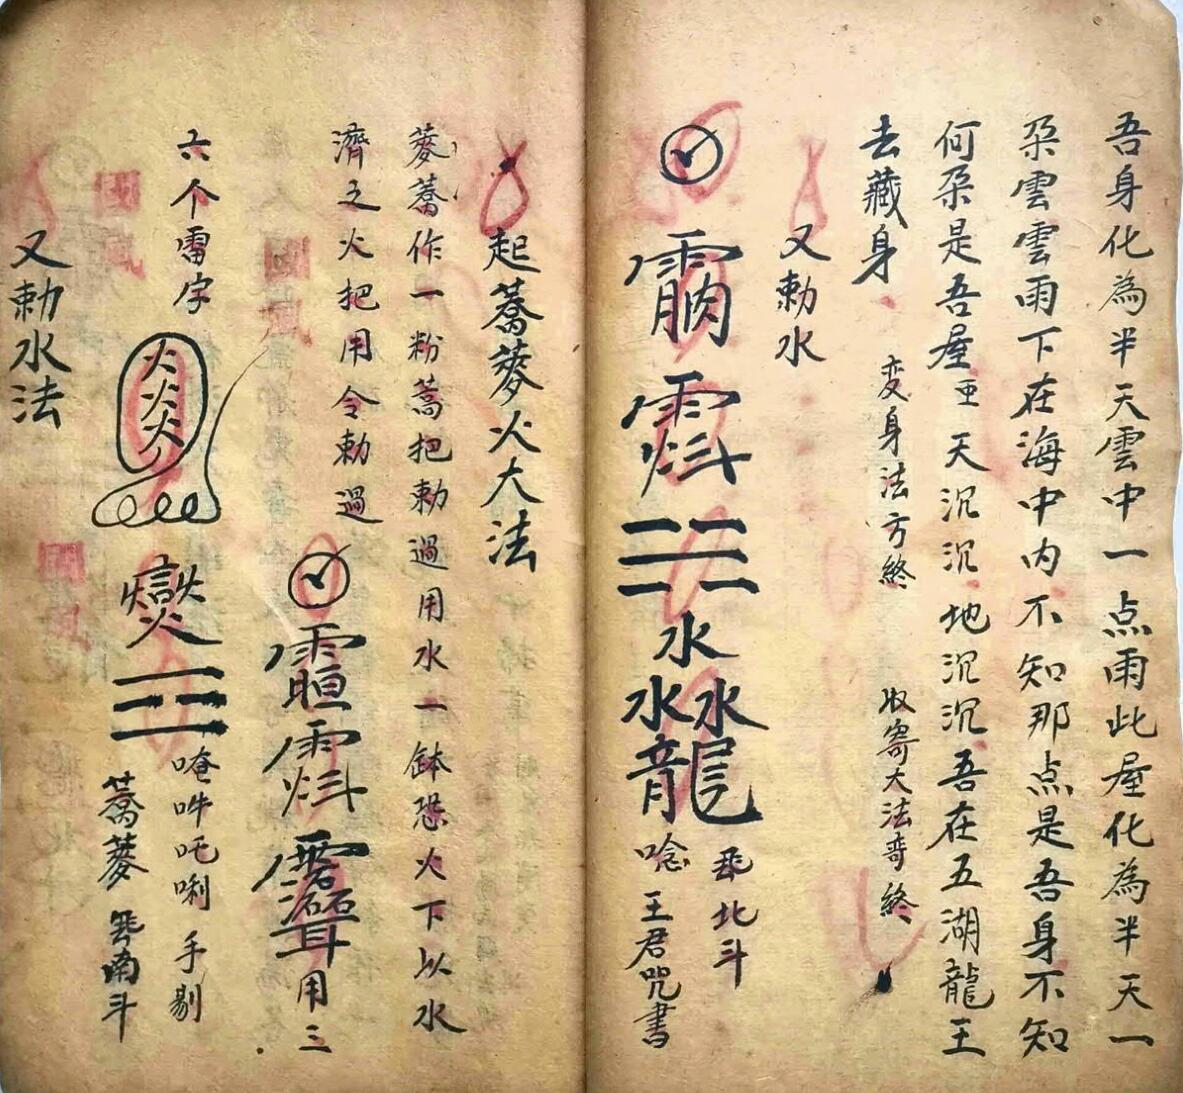 吾身化為半天雲中一点雨此屋化為半天一
朶雲雲雨下在海中内不知那点是吾身不知
何朶是吾屋 天沉沉地沉沉吾在五湖龍王
去藏身 变身法方終 收寄大法奇終
又勅水
水
水水
龍 北斗
唸王君咒書
起蒿蔢火大法
蔢蒿作一粉蒿把勅過用水一缽恐火下以水
濟之火把用令勅過
用三
六个雷字 火火火
唵吽吒唎 手剔
蒿蔢 南斗
又勅水法